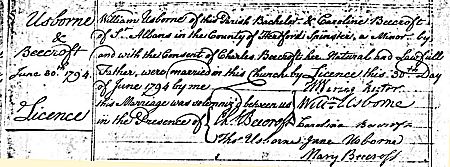 Usborne
&
Beecroft
June 30th 1794.
Licence
William Usborne of this Parish Bachelor & Caroline Beecroft
of St. Albans in the County of Hertford Spinster, a Minor by
and with the Consent of Charles Beecroft her Natural and Lawfull
Father, were married in this Church by Licence this 30th Day
of June 1794 by me
this Marriage was solemnized between us Willm Usborne
in the Presence of Ch. Beecroft Caroline Beecroft
Thos Usborne Jane Usborne
Mary Beecroft